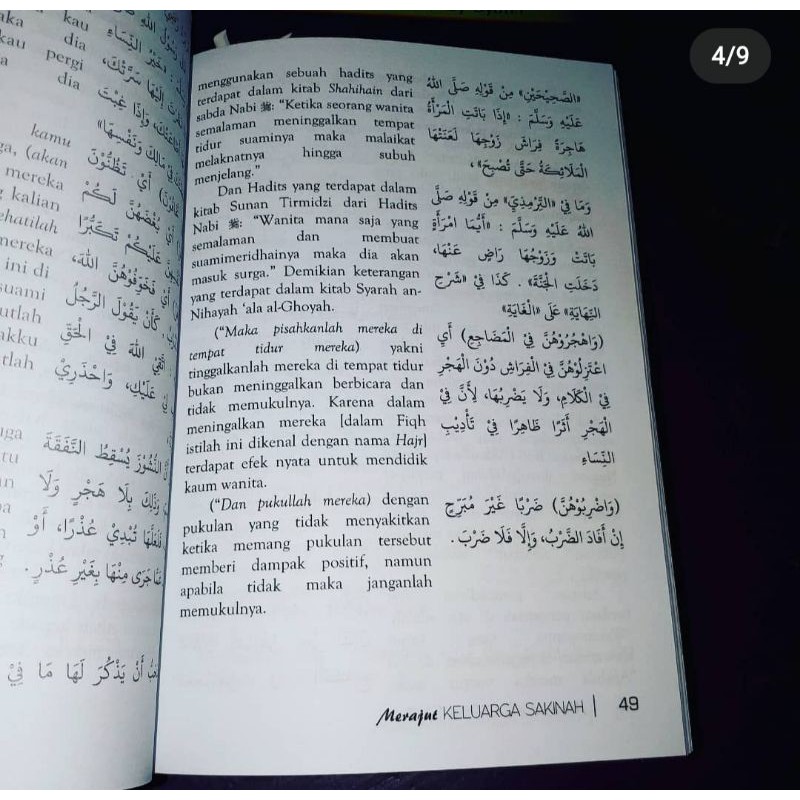 4/9
kau
aka dia
kau pergi
a dia
kamu
ga, (akan
mereka
kalian
ehatilah
mereka
ini di
suami
utlah
akku
tlah
uga
tu
menggunakan sebuah hadits yang
terdapat dalam kitab Shahihain dari
sabda Nabi ﷺ: “Ketika seorang wanita
semalaman meninggalkan tempat
tidur suaminya maka malaikat
melaknatnya hingga subuh
menjelang.”
Dan Hadits yang terdapat dalam
kitab Sunan Tirmidzi dari Hadits
Nabi ﷺ: “Wanita mana saja yang
semalaman dan membuat
suamimeridhainya maka dia akan
masuk surga.” Demikian keterangan
yang terdapat dalam kitab Syarah an-
Nihayah ‘ala al-Ghoyah.
(“Maka pisahkanlah mereka di
tempat tidur mereka) yakni
tinggalkanlah mereka di tempat tidur
bukan meninggalkan berbicara dan
tidak memukulnya. Karena dalam
meningalkan mereka [dalam Fiqh
istilah ini dikenal dengan nama Hajr]
terdapat efek nyata untuk mendidik
kaum wanita.
(“Dan pukullah mereka) dengan
pukulan yang tidak menyakitkan
ketika memang pukulan tersebut
memberi dampak positif, namun
apabila tidak maka janganlah
memukulnya.
«الصَّحِيْحَيْنِ» مِنْ قَوْلِهِ صَلَّى اللهُ
عَلَيْهِ وَسَلَّمَ : «إِذَا بَاتَتِ الْمَرْأَةُ
هَاجِرَةً فِرَاشَ زَوْجِهَا لَعَنَتْهَا
الْمَلَائِكَةُ حَتَّى تُصْبِحَ»،
وَمَا فِيْ «التِّرْمِذِيِّ» مِنْ قَوْلِهِ صَلَّى
اللهُ عَلَيْهِ وَسَلَّمَ : «أَيُّمَا امْرَأَةٍ
بَاتَتْ وَزَوْجُهَا رَاضٍ عَنْهَا،
دَخَلَتِ الْجَنَّةَ» . كَذَا فِيْ «شَرْحِ
النِّهَايَةِ» عَلَى «الْغَايَةِ»
(وَاهْجُرُوْهُنَّ فِي الْمَضَاجِعِ) أَيِ
اعْتَزِلُوْهُنَّ فِيْ الْفِرَاشِ دُوْنَ الْهَجْرِ
فِيْ الْكَلَامِ، وَلَا يَضْرِبُهَا، لِأَنَّ فِيْ
الْهَجْرِ أَثَرًا ظَاهِرًا فِيْ تَأْدِيْبِ
النِّسَاءِ
(وَاضْرِبُوْهُنَّ) ضَرْبًا غَيْرَ مُبَرِّحٍ
إِنْ أَفَادَ الضَّرْبُ، وَإِلَّا فَلَا ضَرْبَ .
Merajut KELUARGA SAKINAH | 49